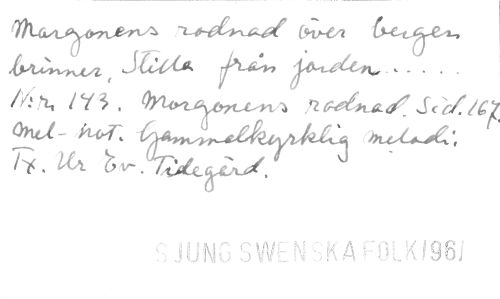 Morgonens rodnad över bergen
brinner, Stilla från jorden......
N:r. 143. Morgonens rodnad. Sid. 167.
Mel-not. Gammalkyrklig melodi.
Tx. Ur Ev. Tidegärd.
SJUNG SWENSKA FOLK/961